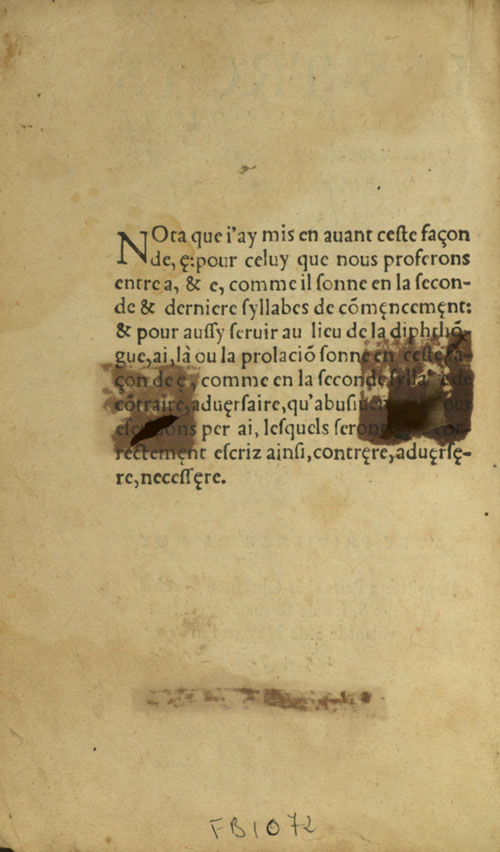 NOta que i'ay mis en auant ceſte façon
de, ę: pour celuy que nous proferons
entre a, & e, comme il ſonne en la ſecon-
de & derniere ſyllabes de cõmęncemęnt:
& pour auſſy ſeruir au lieu de la diphthõ-
gue, ai, là ou la prolaciõ ſonne en ceſte fa-
çon de ę, comme en la ſeconde de
cõtraire, aduęrſaire, qu'abuſiuem
eſcriuons per ai, leſquels ſeront
rectemęnt eſcriz ainſi, contręre, aduęrſę-
re, neceſſęre.
FB1072